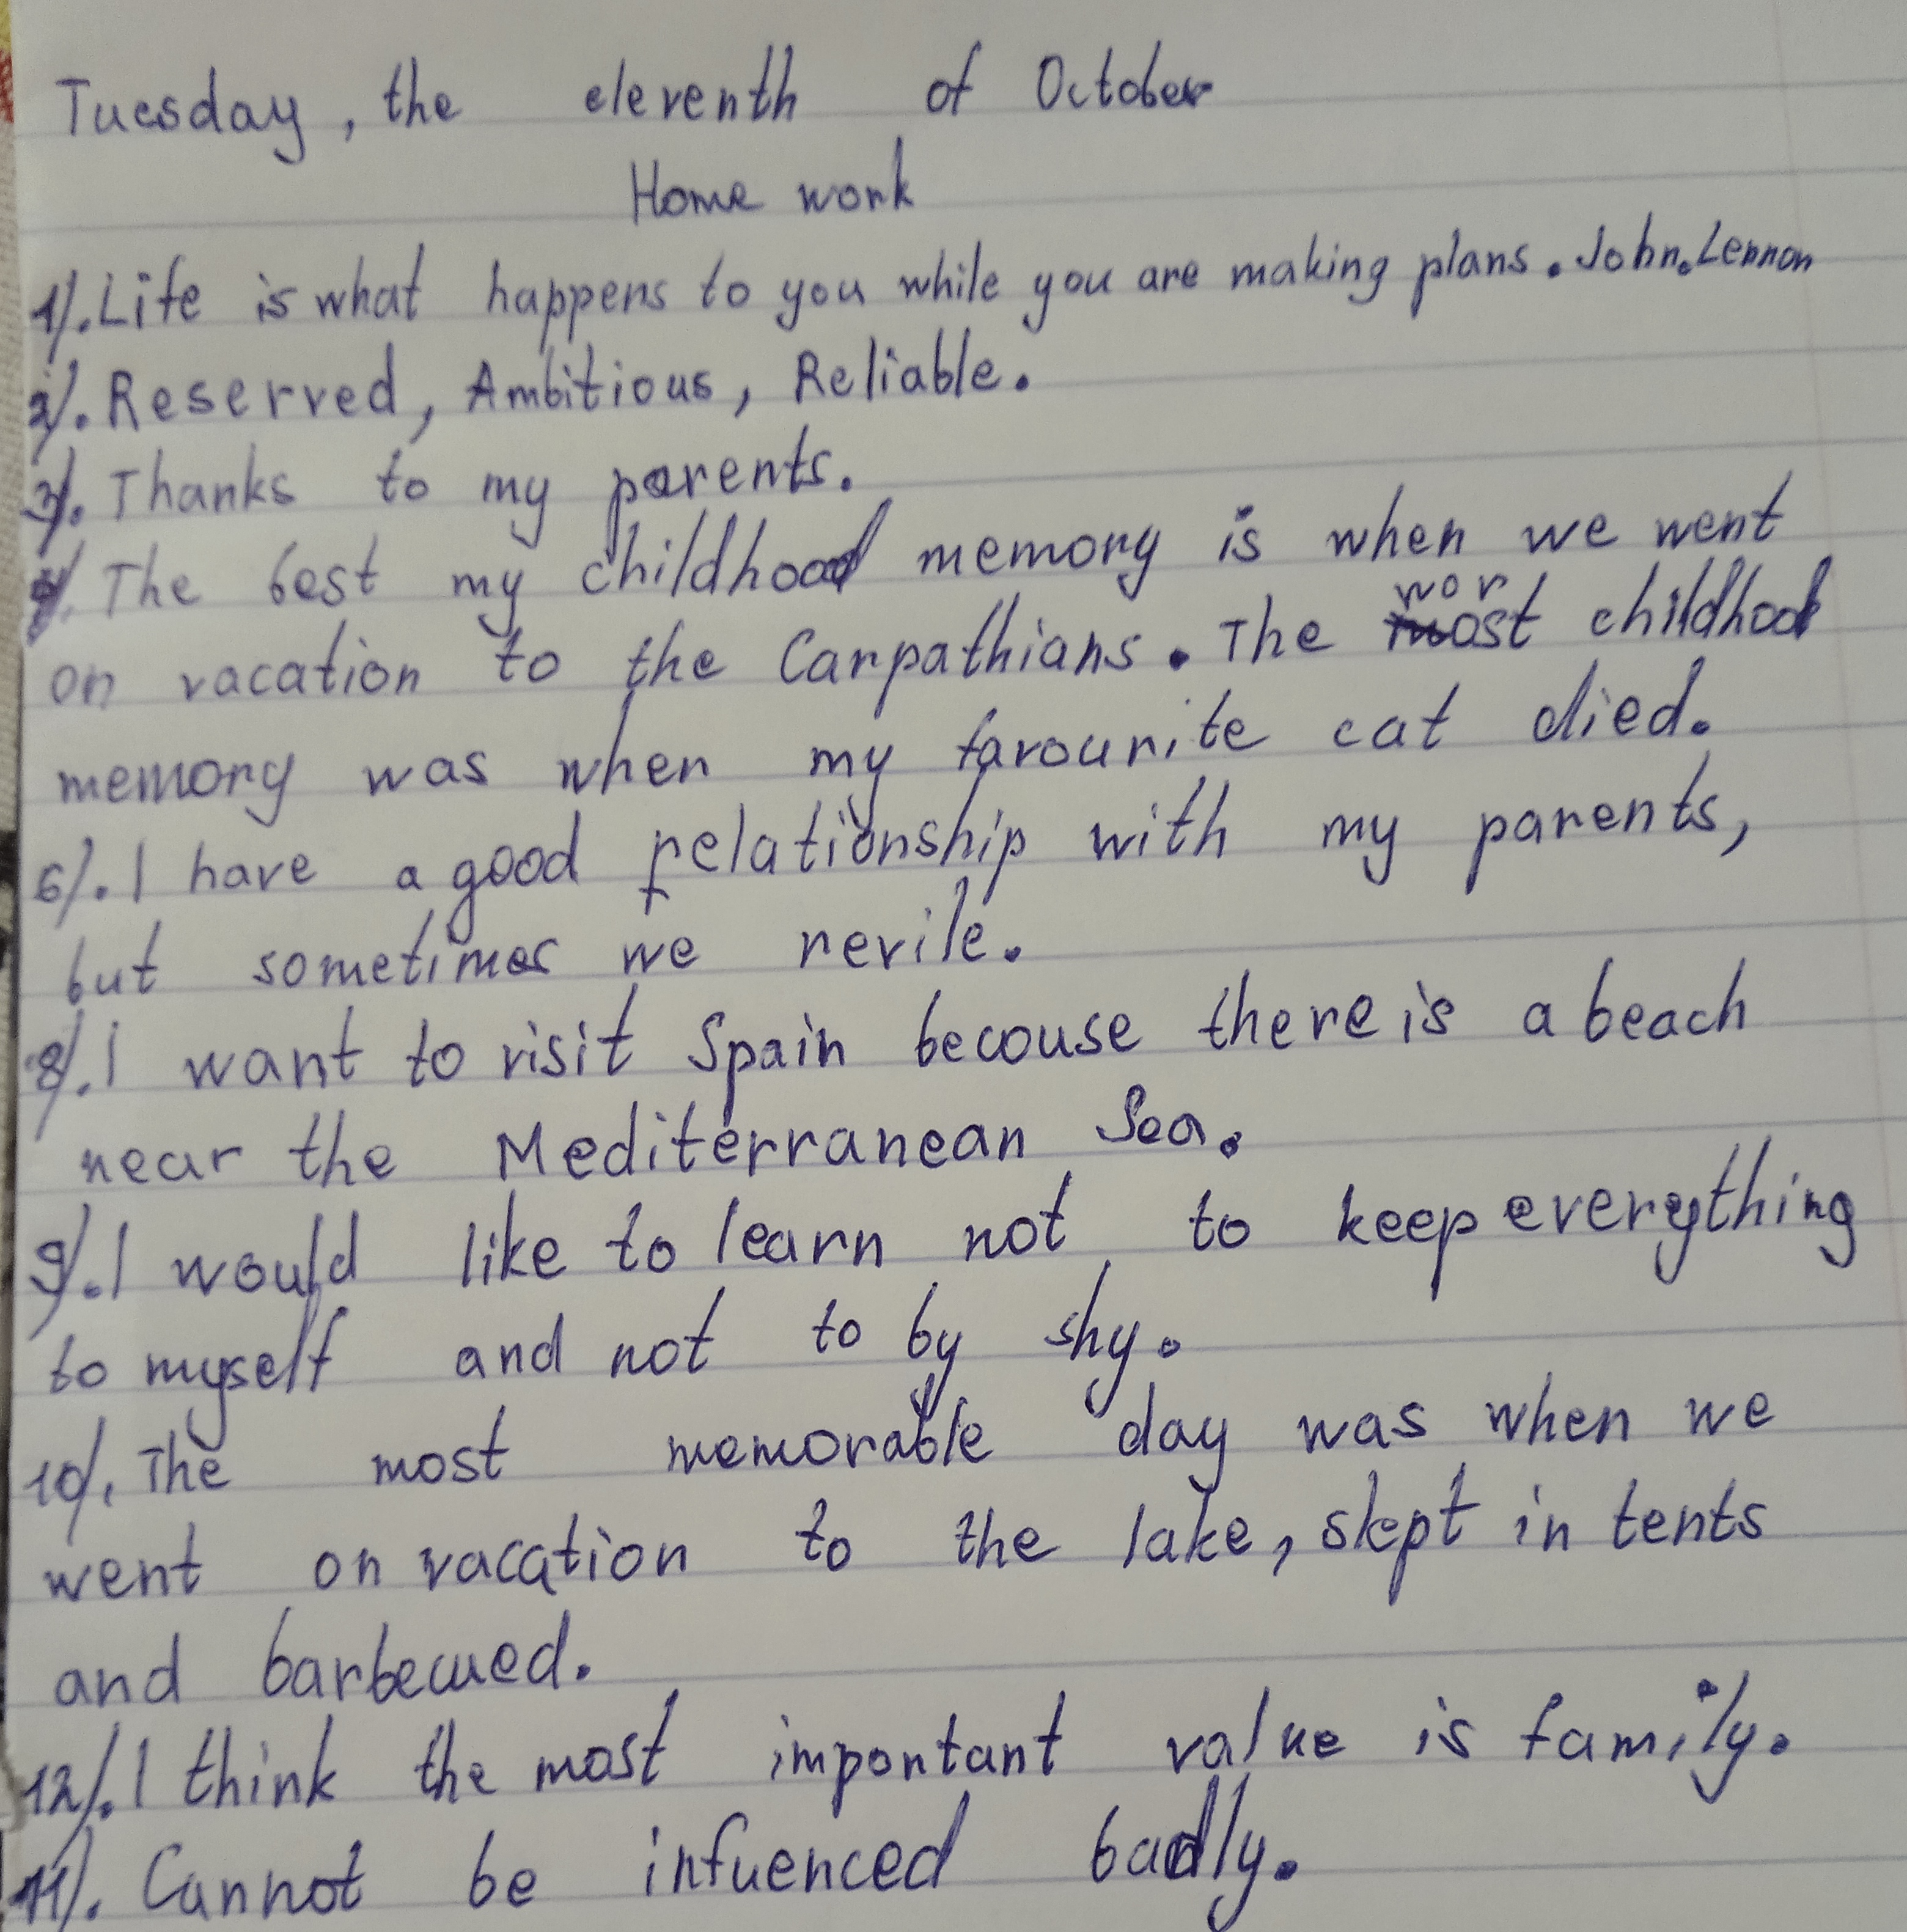 Tuesday, the eleventh of October
Home work
1). Life is what happens to you while you are making plans. John.Lennon
2). Reserved, Ambitious, Reliable.
3). Thanks to my parents.
4). The best my childhood memory is when we went
on vacation to the Carpathians. The worst childhood
memory was when my favourite cat died.
6). I have a good relationship with my parents,
but sometimes we revile.
8). I want to visit Spain becouse there is a beach
near the Mediterranean Sea.
9). I would like to learn not to keep everything
to myself and not to by shy.
10). The most memorable day was when we
went on vacation to the lake, slept in tents
and barbecued.
12). I think the most important value is family.
11). Cannot be infuenced badly.